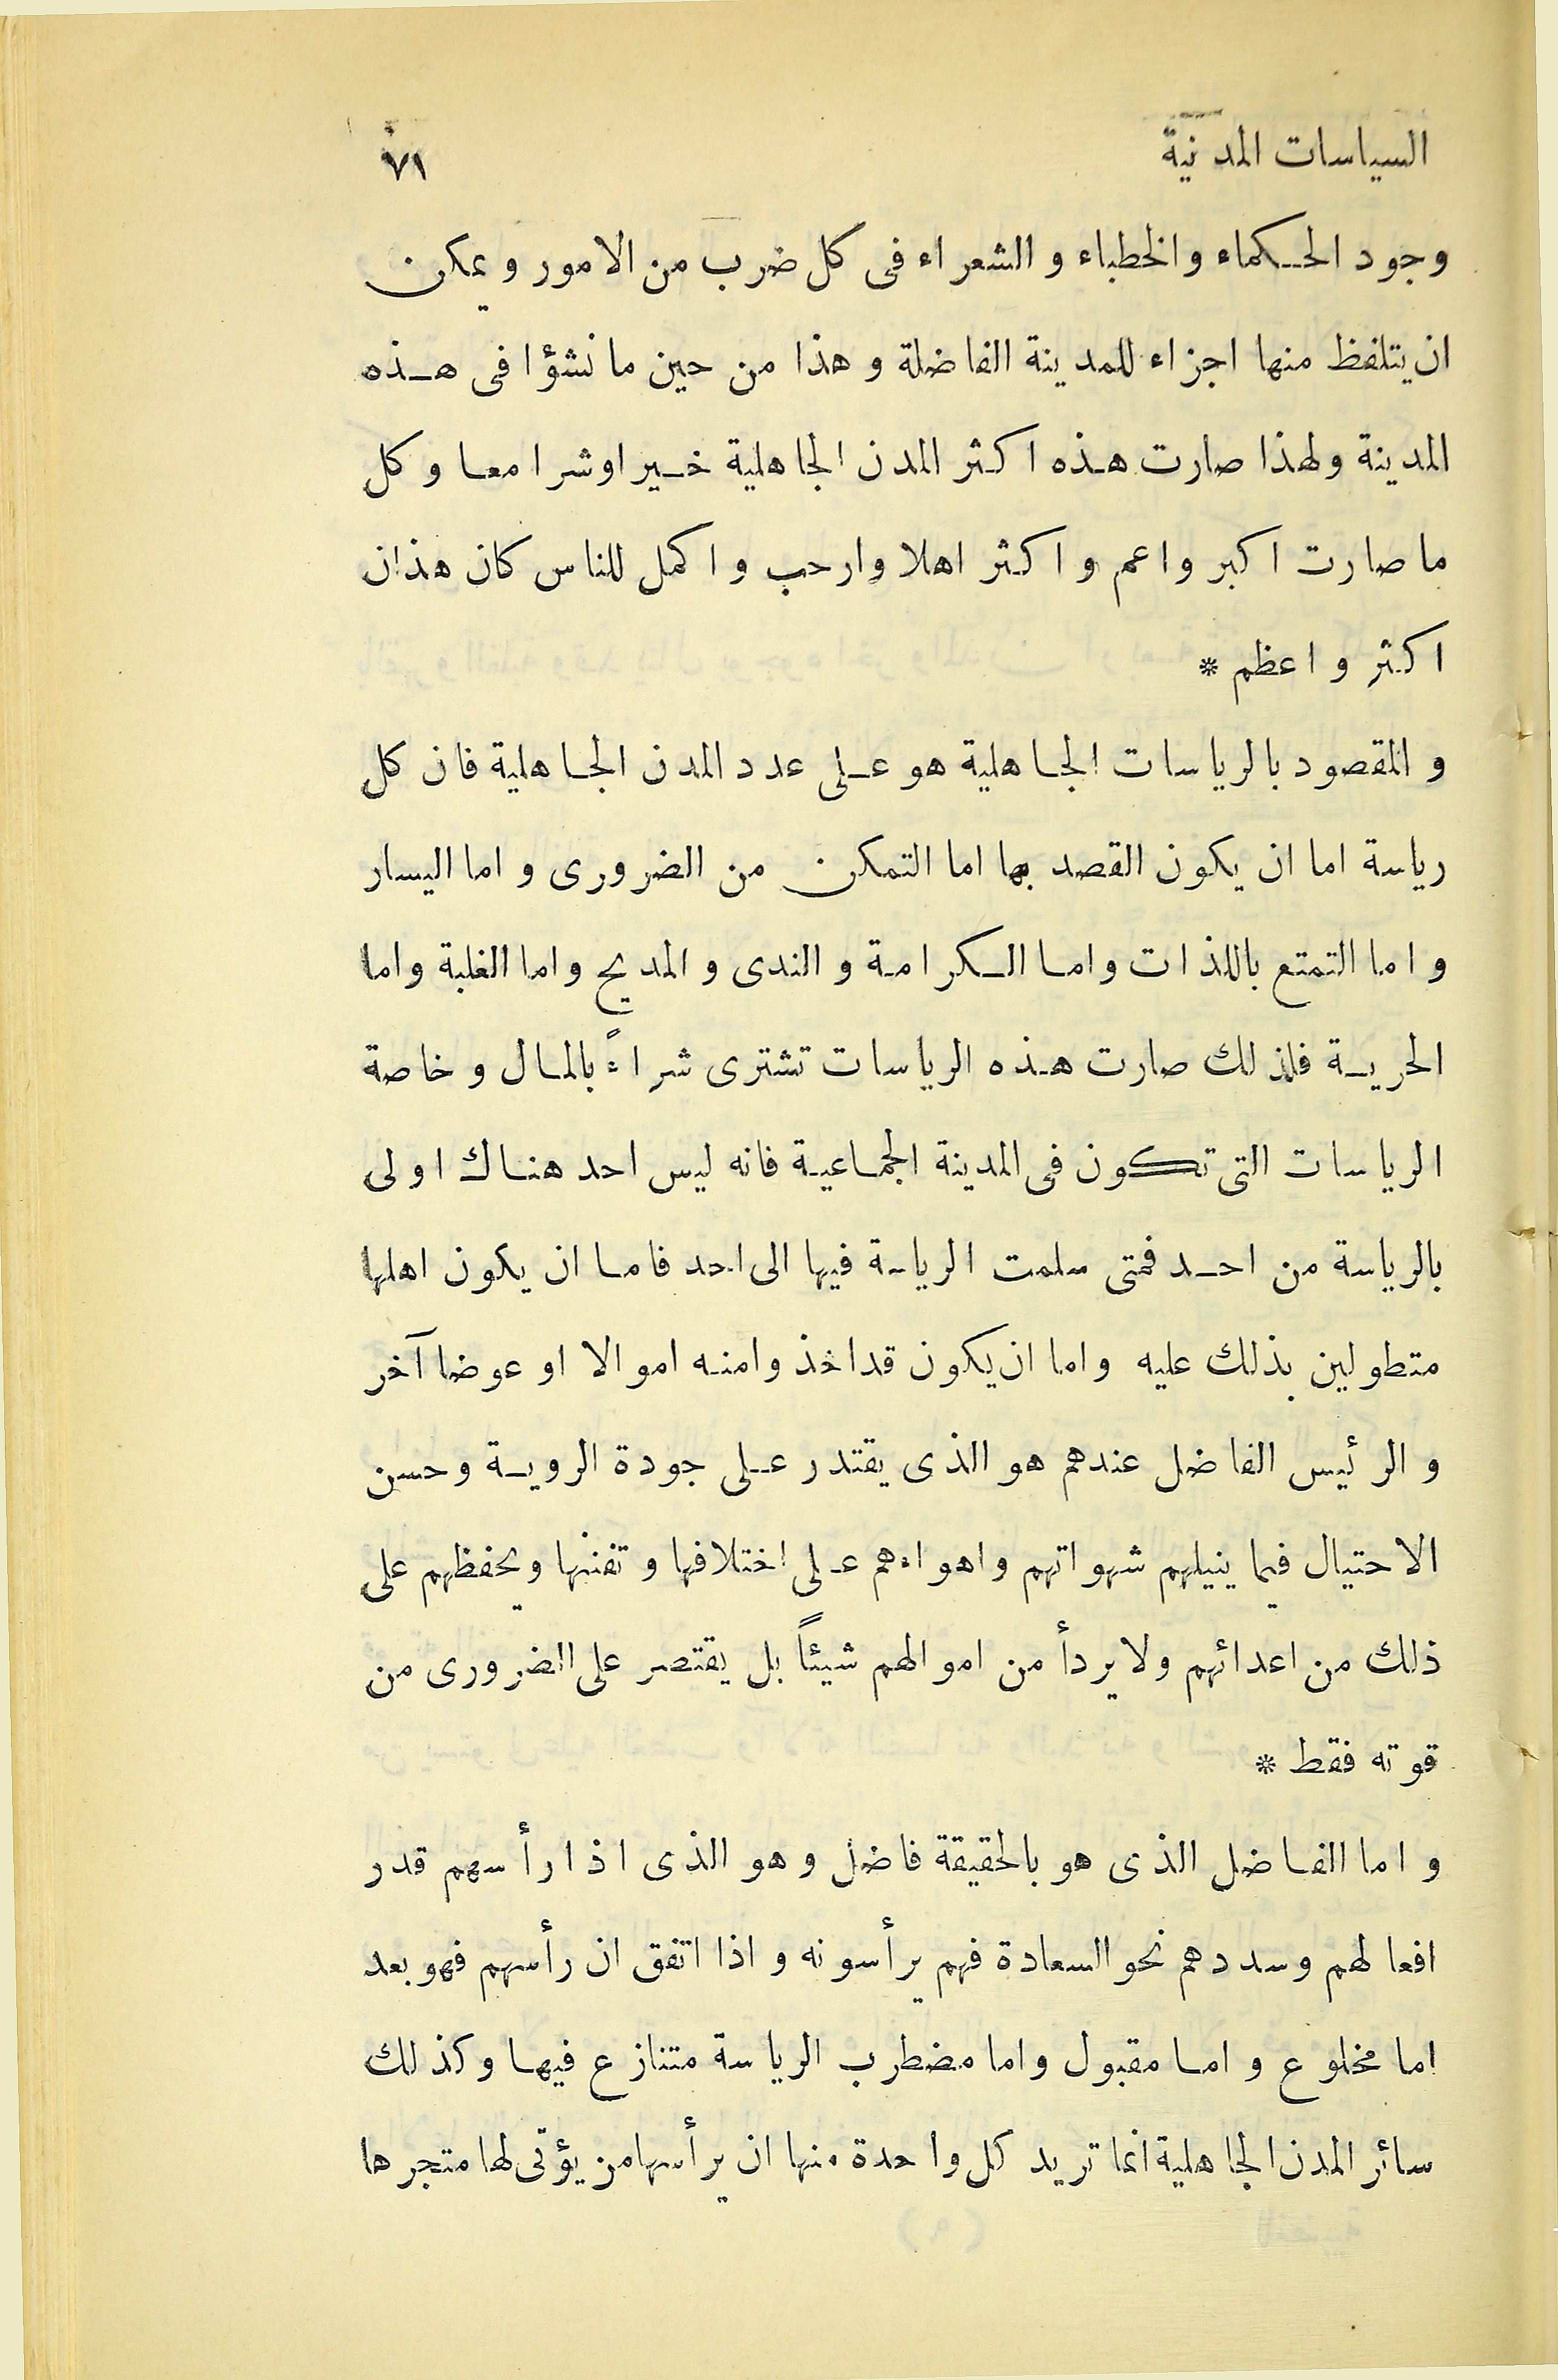 السياسات المدنية ٧١
وجود الحكماء والخطباء والشعراء فى كل ضرب من الامور ويمكن
ان يتلفظ منها اجزاء للمدينة الفاضلة وهذا من حين ما نشؤا فى هذه
المدينة ولهذا صارت هذه اكثر المدن الجاهلية خيرا وشرا معا وكل
ما صارت اكبر واعم واكثر اهلا وارحب واكمل للناس كان هذان
اكثر واعظم *
والمقصود بالرياسات الجاهلية هو على عدد المدن الجاهلية فان كل
رياسة اما ان يكون القصد بها اما التمكن من الضرورى واما اليسار
واما التمتع باللذات واما الكرامة والندى والمديح واما الغلبة واما
الحرية فلذلك صارت هذه الرياسات تشترى شراءً بالمال وخاصة
الرياسات التى تكون فى المدينة الجماعية فانه ليس احد هناك اولى
بالرياسة من احد فمتى سلمت الرياسة فيها الى احد فاما ان يكون اهلها
متطولين بذلك عليه واما ان يكون قد اخذ وامنه اموالا او عوضا آخر
والرئيس الفاضل عندهم هو الذى يقتدر على جودة الروية وحسن
الاحتيال فيما ينيلهم شهواتهم واهواءهم على اختلافها وتفننها ويحفظهم على
ذلك من اعدائهم ولا يردأ من اموالهم شيئاً بل يقتصر على الضرورى من
قوته فقط *
واما الفاضل الذى هو بالحقيقة فاضل وهو الذى اذا رأسهم قدر
افعالهم وسددهم نحو السعادة فهم يرأسونه واذا اتفق ان رأسهم فهو بعد
اما مخلوع واما مقبول واما مضطرب الرياسة متنازع فيها وكذلك
سائر المدن الجاهلية انما تريد كل واحدة منها ان يرأسها من يؤتى لها متجرها